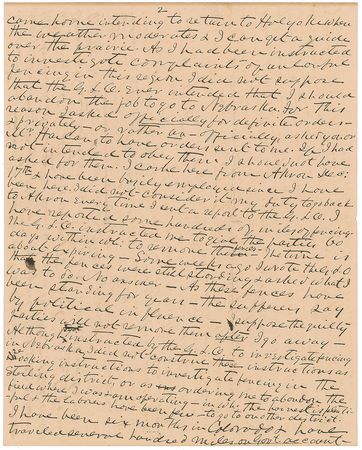 2
come home intending to return to Holyoke when
the weather moderates & I can get a guide
over the prairie. As I had been instructed
to investigate complaints of unlawful
fencing in this region I did not suppose
that the G.L.O. ever intended that I should
abandon the job to go to Nebraska. For this
reason I asked officially for definite orders
& privately - or rather un-officially, asked you or
Mr. Harlan to have orders sent to me. If I had
not intended to obey them I should not have
asked for them. I came here from Akron Dec:
& have been busily employed since I have
been here. I did not consider it my duty to go back
to Akron every time I sent a report to the G.L.O. I
have reported some hundreds of miles of fencing.
The G.L.O. instructed me to give the parties 60
days within wh: to remove them. The time is
about expiring - Some weeks ago I wrote the G.L.O
that the fences were still standing & asked what I
was to do. No answer - As these fences have
been standing for years - the sufferers say
by political influence - I suppose the guilty
parties will not remove them after I go away -
Although instructed by the G.L.O. to investigate fencing
in Nebraska, I did not construe these instructions as
revoking instructions to investigate fencing in the
Sterling district or as ordering me to abandon the
field where I was operating - in wh: the harvest is plenti-
ful & the laborers have been few - to go to another district.
I have been six months in Colorado & have
traveled several hundred miles on Govt account -